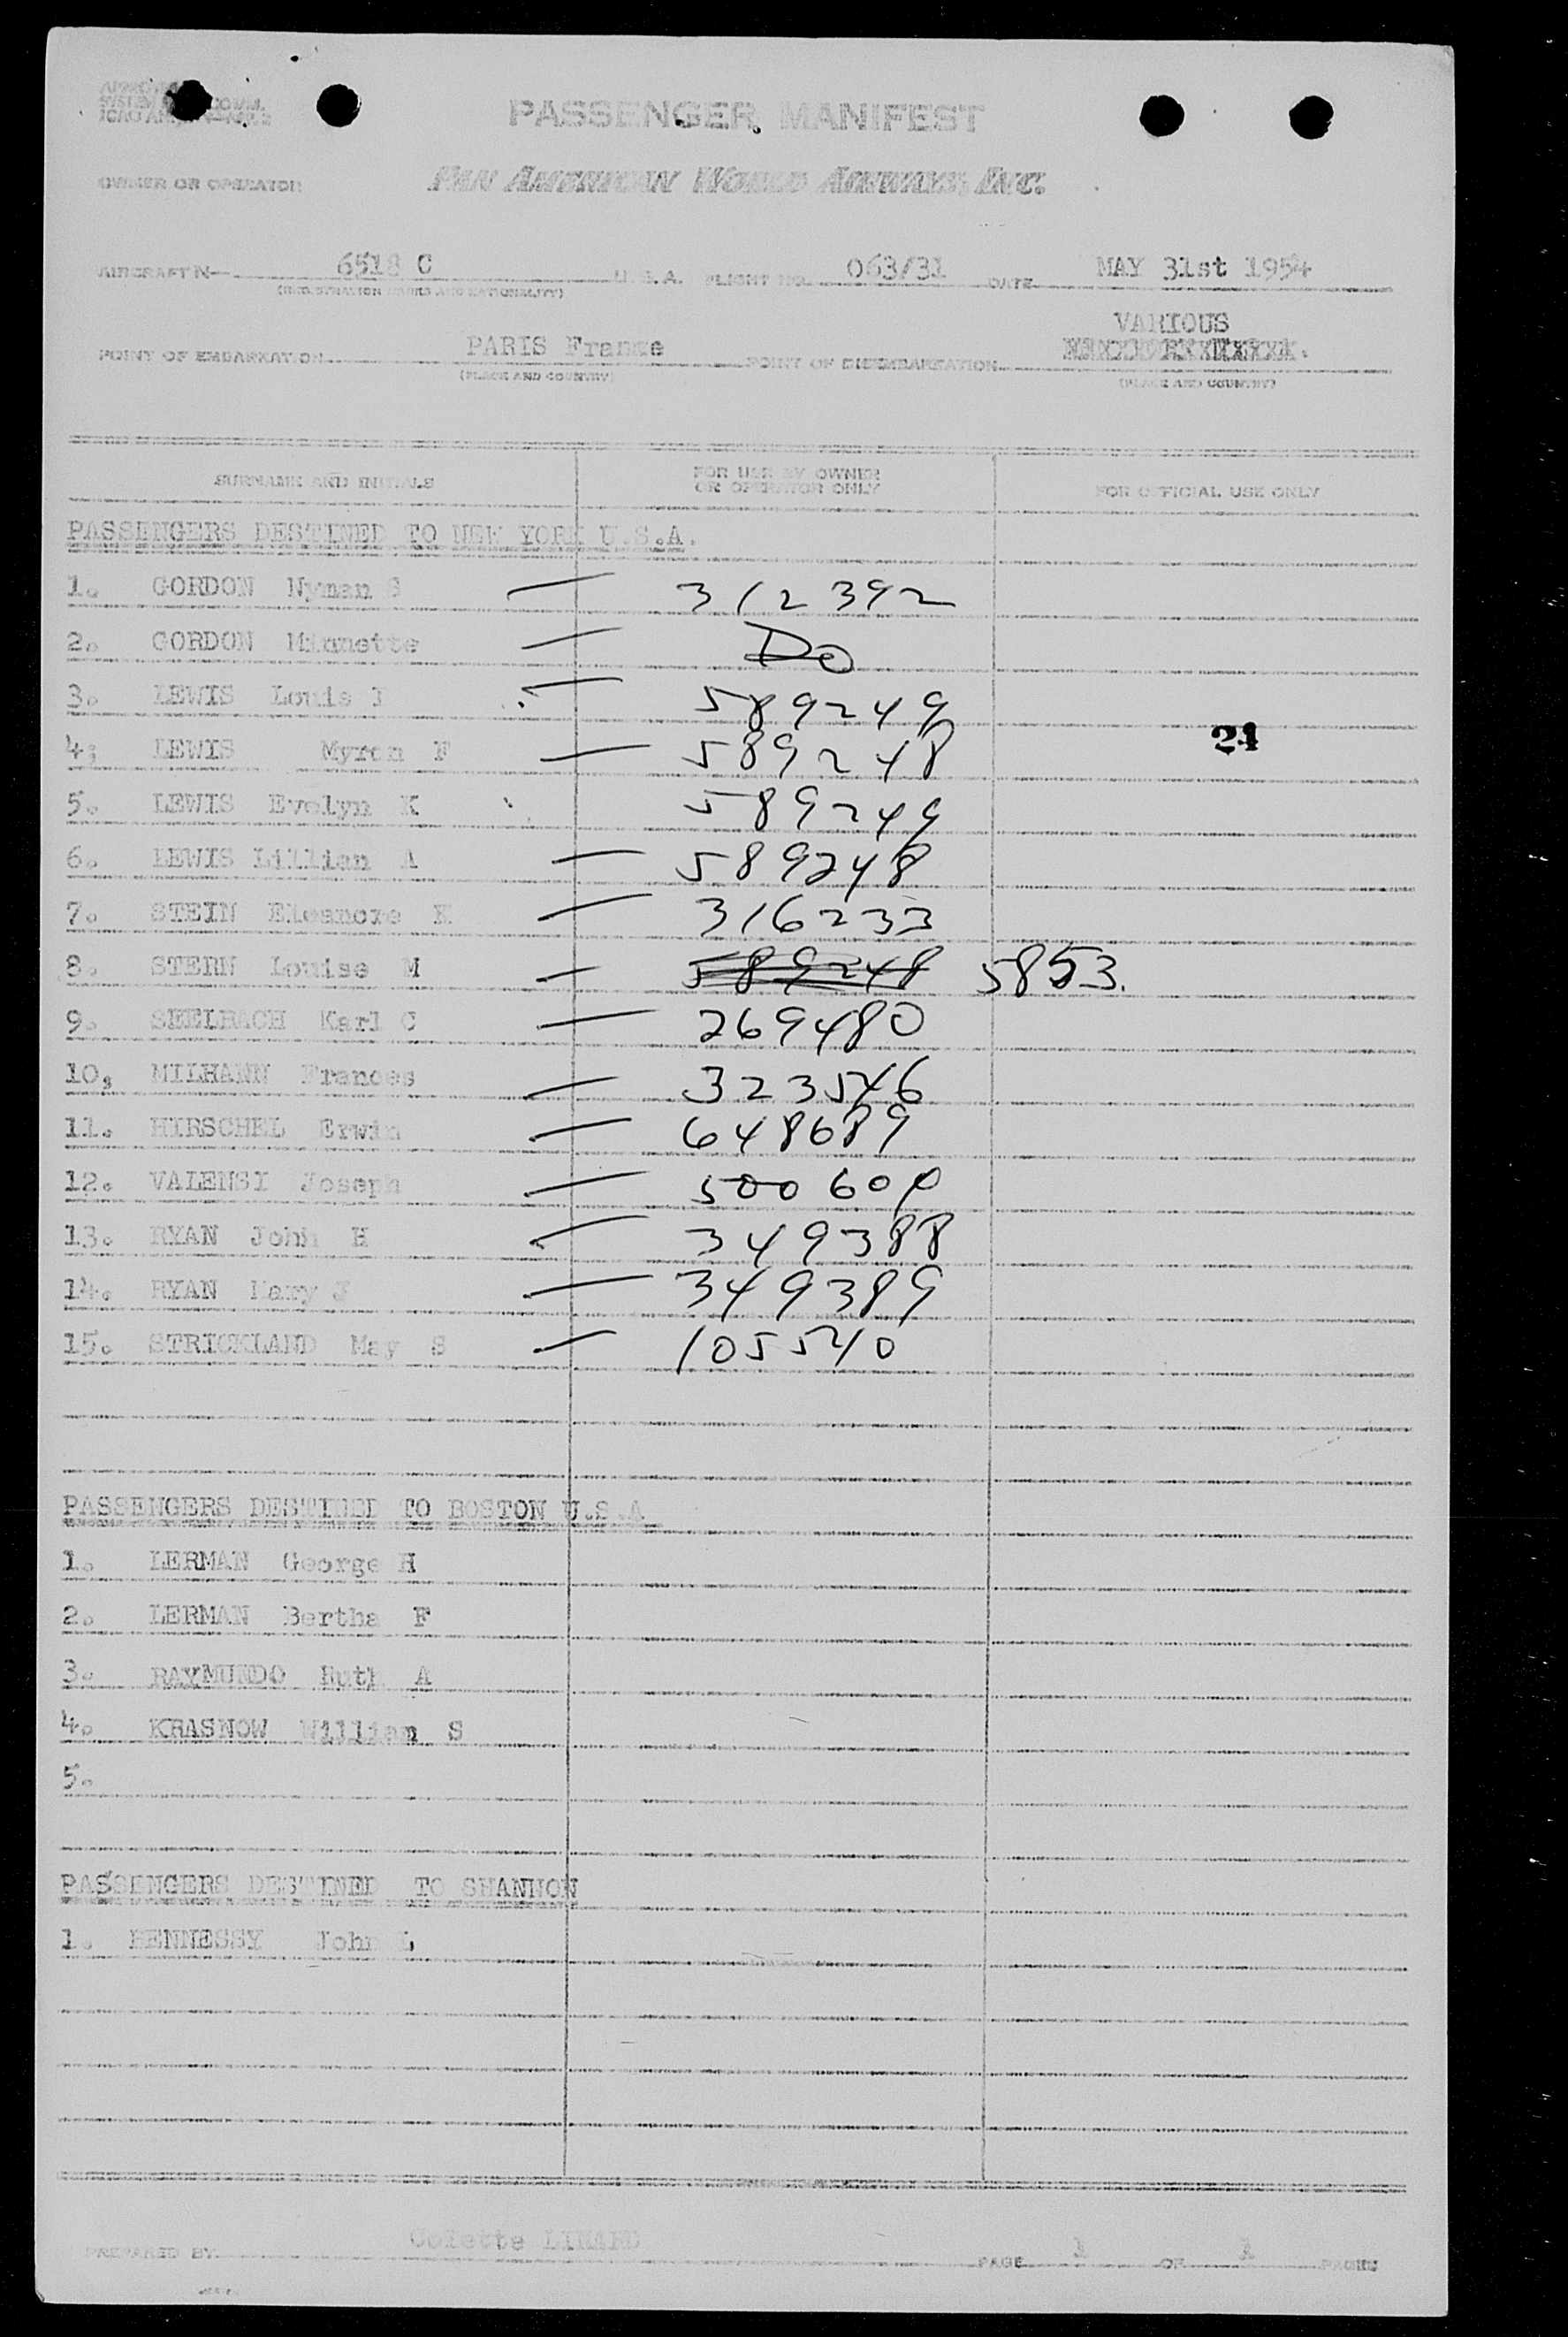 PASSENGER MANIFEST
OWNER OR OPERATOR PAN AMERICAN WORLD AIRWAYS, INC.
AIRCRAFT N— 6518 C U.S.A. FLIGHT NO. 063/31 DATE MAY 31st 1954
(REGISTRATION MARKS AND NATIONALITY)
VARIOUS
POINT OF EMBARKATION PARIS France POINT OF DISEMBARKATION
(PLACE AND COUNTRY) (PLACE AND COUNTRY)
SURNAME AND INITIALS FOR USE BY OWNER OR OPERATOR ONLY FOR OFFICIAL USE ONLY
PASSENGERS DESTINED TO NEW YORK U.S.A.
1. GORDON Nyman — 312392
2. GORDON Minnette — Do
3. LEWIS Louis I — 589249
24
4; LEWIS Myron F — 589248
5. LEWIS Evelyn K 589249
6. LEWIS Lillian A — 589248
7. STEIN Eleanore — 316233
8. STERN Louise M — 589248 5853.
9. SEELBACH Karl C — 269480
10; MILHANN Frances — 323546
11. HIRSCHEL Erwin — 648689
12. VALENSI Joseph — 500600
13. RYAN John H — 349388
14. RYAN Mary J — 349389
15. STRICKLAND May S — 105540
PASSENGERS DESTINED TO BOSTON U.S.A
1. LERMAN George H
2. LERMAN Bertha F
3. RAYMUNDO Ruth A
4. KRASNOW William S
5.
PASSENGERS DESTINED TO SHANNON
1. HENNESSY John L
PREPARED BY Colette LINARD PAGE 1 OF 1 PAGES